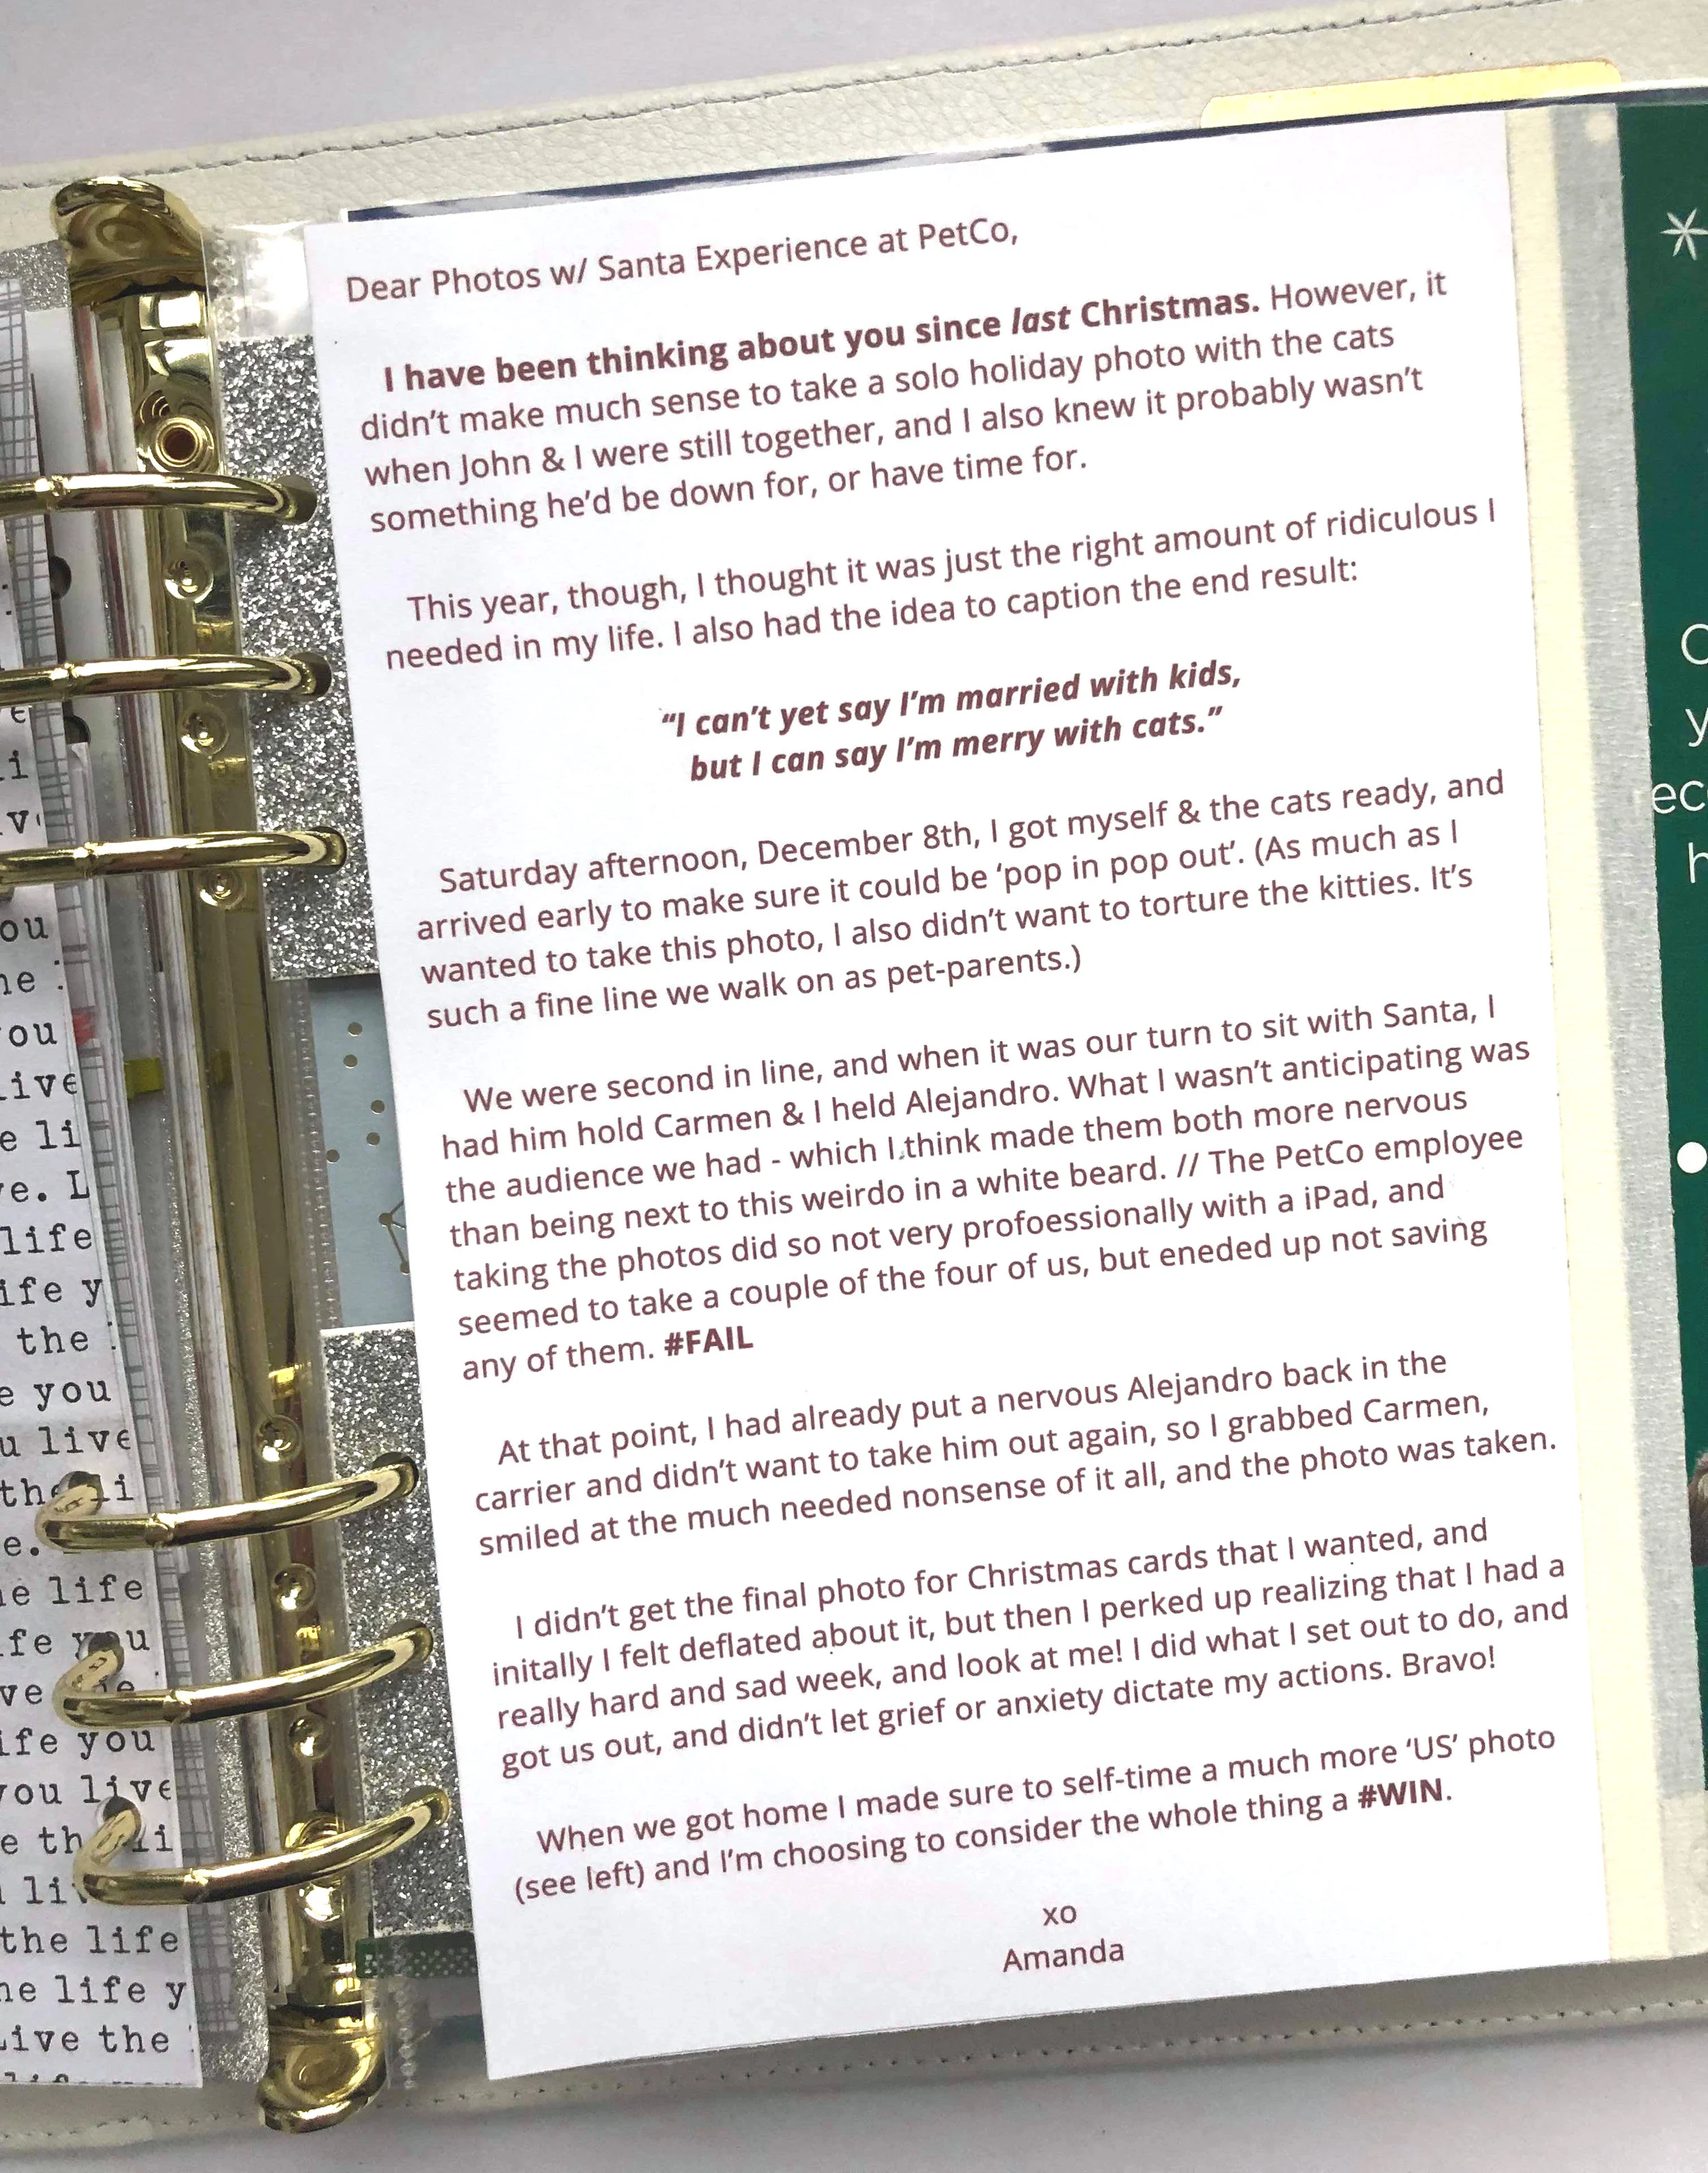 Dear Photos w/ Santa Experience at PetCo,
I have been thinking about you since last Christmas. However, it
didn't make much sense to take a solo holiday photo with the cats
when John & I were still together, and I also knew it probably wasn't
something he'd be down for, or have time for.
This year, though, I thought it was just the right amount of ridiculous I
needed in my life. I also had the idea to caption the end result:
“I can't yet say I'm married with kids,
but I can say I'm merry with cats.”
Saturday afternoon, December 8th, I got myself & the cats ready, and
arrived early to make sure it could be ‘pop in pop out’. (As much as I
wanted to take this photo, I also didn't want to torture the kitties. It's
such a fine line we walk on as pet-parents.)
We were second in line, and when it was our turn to sit with Santa, I
had him hold Carmen & I held Alejandro. What I wasn't anticipating was
the audience we had - which I think made them both more nervous
than being next to this weirdo in a white beard. // The PetCo employee
taking the photos did so not very profoessionally with a iPad, and
seemed to take a couple of the four of us, but eneded up not saving
any of them. #FAIL
At that point, I had already put a nervous Alejandro back in the
carrier and didn't want to take him out again, so I grabbed Carmen,
smiled at the much needed nonsense of it all, and the photo was taken.
I didn't get the final photo for Christmas cards that I wanted, and
initally I felt deflated about it, but then I perked up realizing that I had a
really hard and sad week, and look at me! I did what I set out to do, and
got us out, and didn't let grief or anxiety dictate my actions. Bravo!
When we got home I made sure to self-time a much more ‘US’ photo
(see left) and I'm choosing to consider the whole thing a #WIN.
xo
Amanda
ou
ou
ive
e li
e. L
life
ife y
the
e you
u live
e.
e life
ve
ife you
ou live
the life
he life y
ive the